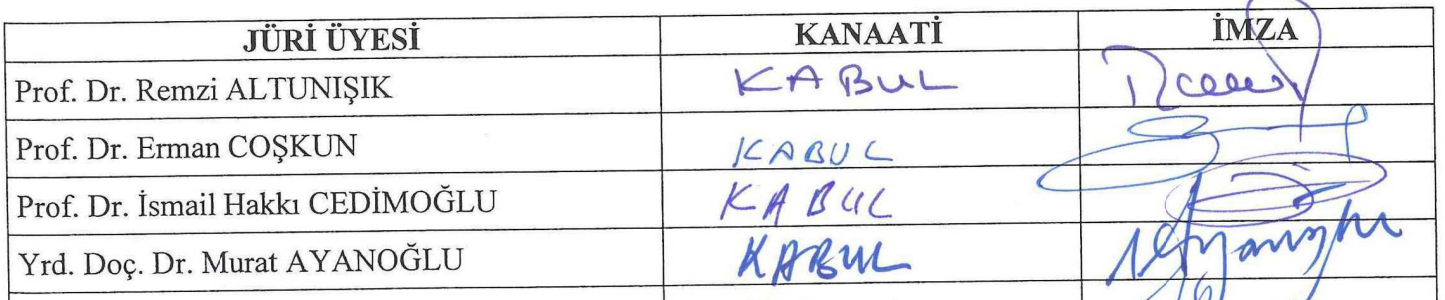 JÜRİ ÜYESİ KANAATİ İMZA
Prof. Dr. Remzi ALTUNIŞIK KABUL
Prof. Dr. Erman COŞKUN KABUL
Prof. Dr. İsmail Hakkı CEDİMOĞLU KABUL
Yrd. Doç. Dr. Murat AYANOĞLU KABUL